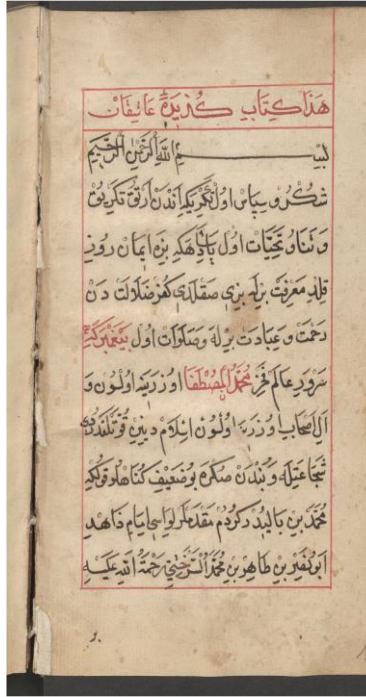 هَذَا كِتَابِ كُذِيدَهٔ عَاشِقَانْ
بِسْمِ اللّٰهِ الرَّحْمٰنِ الرَّحِيمِ
شُكْرُ و سِپَاسْ اول تَڭرِيَه كِه اَنْدَنْ اَرْتُقْ تَڭرِى يُوقْ
وَ ثَنَا وُ تَحِيَّاتْ اول پَادِشَاهَه كِه بِزِه اِيمَان رُوزِى
قِلْدِ مَعْرِفَتْ بِرْلَه بِزِى صَقْلَدِى كُفرْ ضَلَالَتْ دَنْ
رَحْمَتْ وَ عِبَادَتْ بِرْلَه وَ صَلَوَاتْ اول پَيْغَمْبَر كِه
سَرْوَرِ عَالَمْ فَخْرِ مُحَمَّدُ الْمُصْطَفَا اوزرِيَنه اولسُون وَ
آلِ اَصْحَابِ اُوزرِنَه اُولْسُون اِسْلَامْ دِينِنِ قُوَّتْلَنْدُردِى
شَجَاعَتِلَه وَ بُنْدَنْ صُكْرَه بُو ضَعِيفِ كُنَاهْلُو قُولْ كِه
مُحَمَّدْ بِنِ بَالِى دُرْ كَرْدُمْ مُقَدَّمَلَر اِمَامِ زَاهِدِ
اَبُو نَصْرِ بِنِ طَاهِرِ بِنِ مُحَمَّدْ السَّرَخْسِيِّ رَحْمَةُ اللّٰهِ عَلَيْهِ